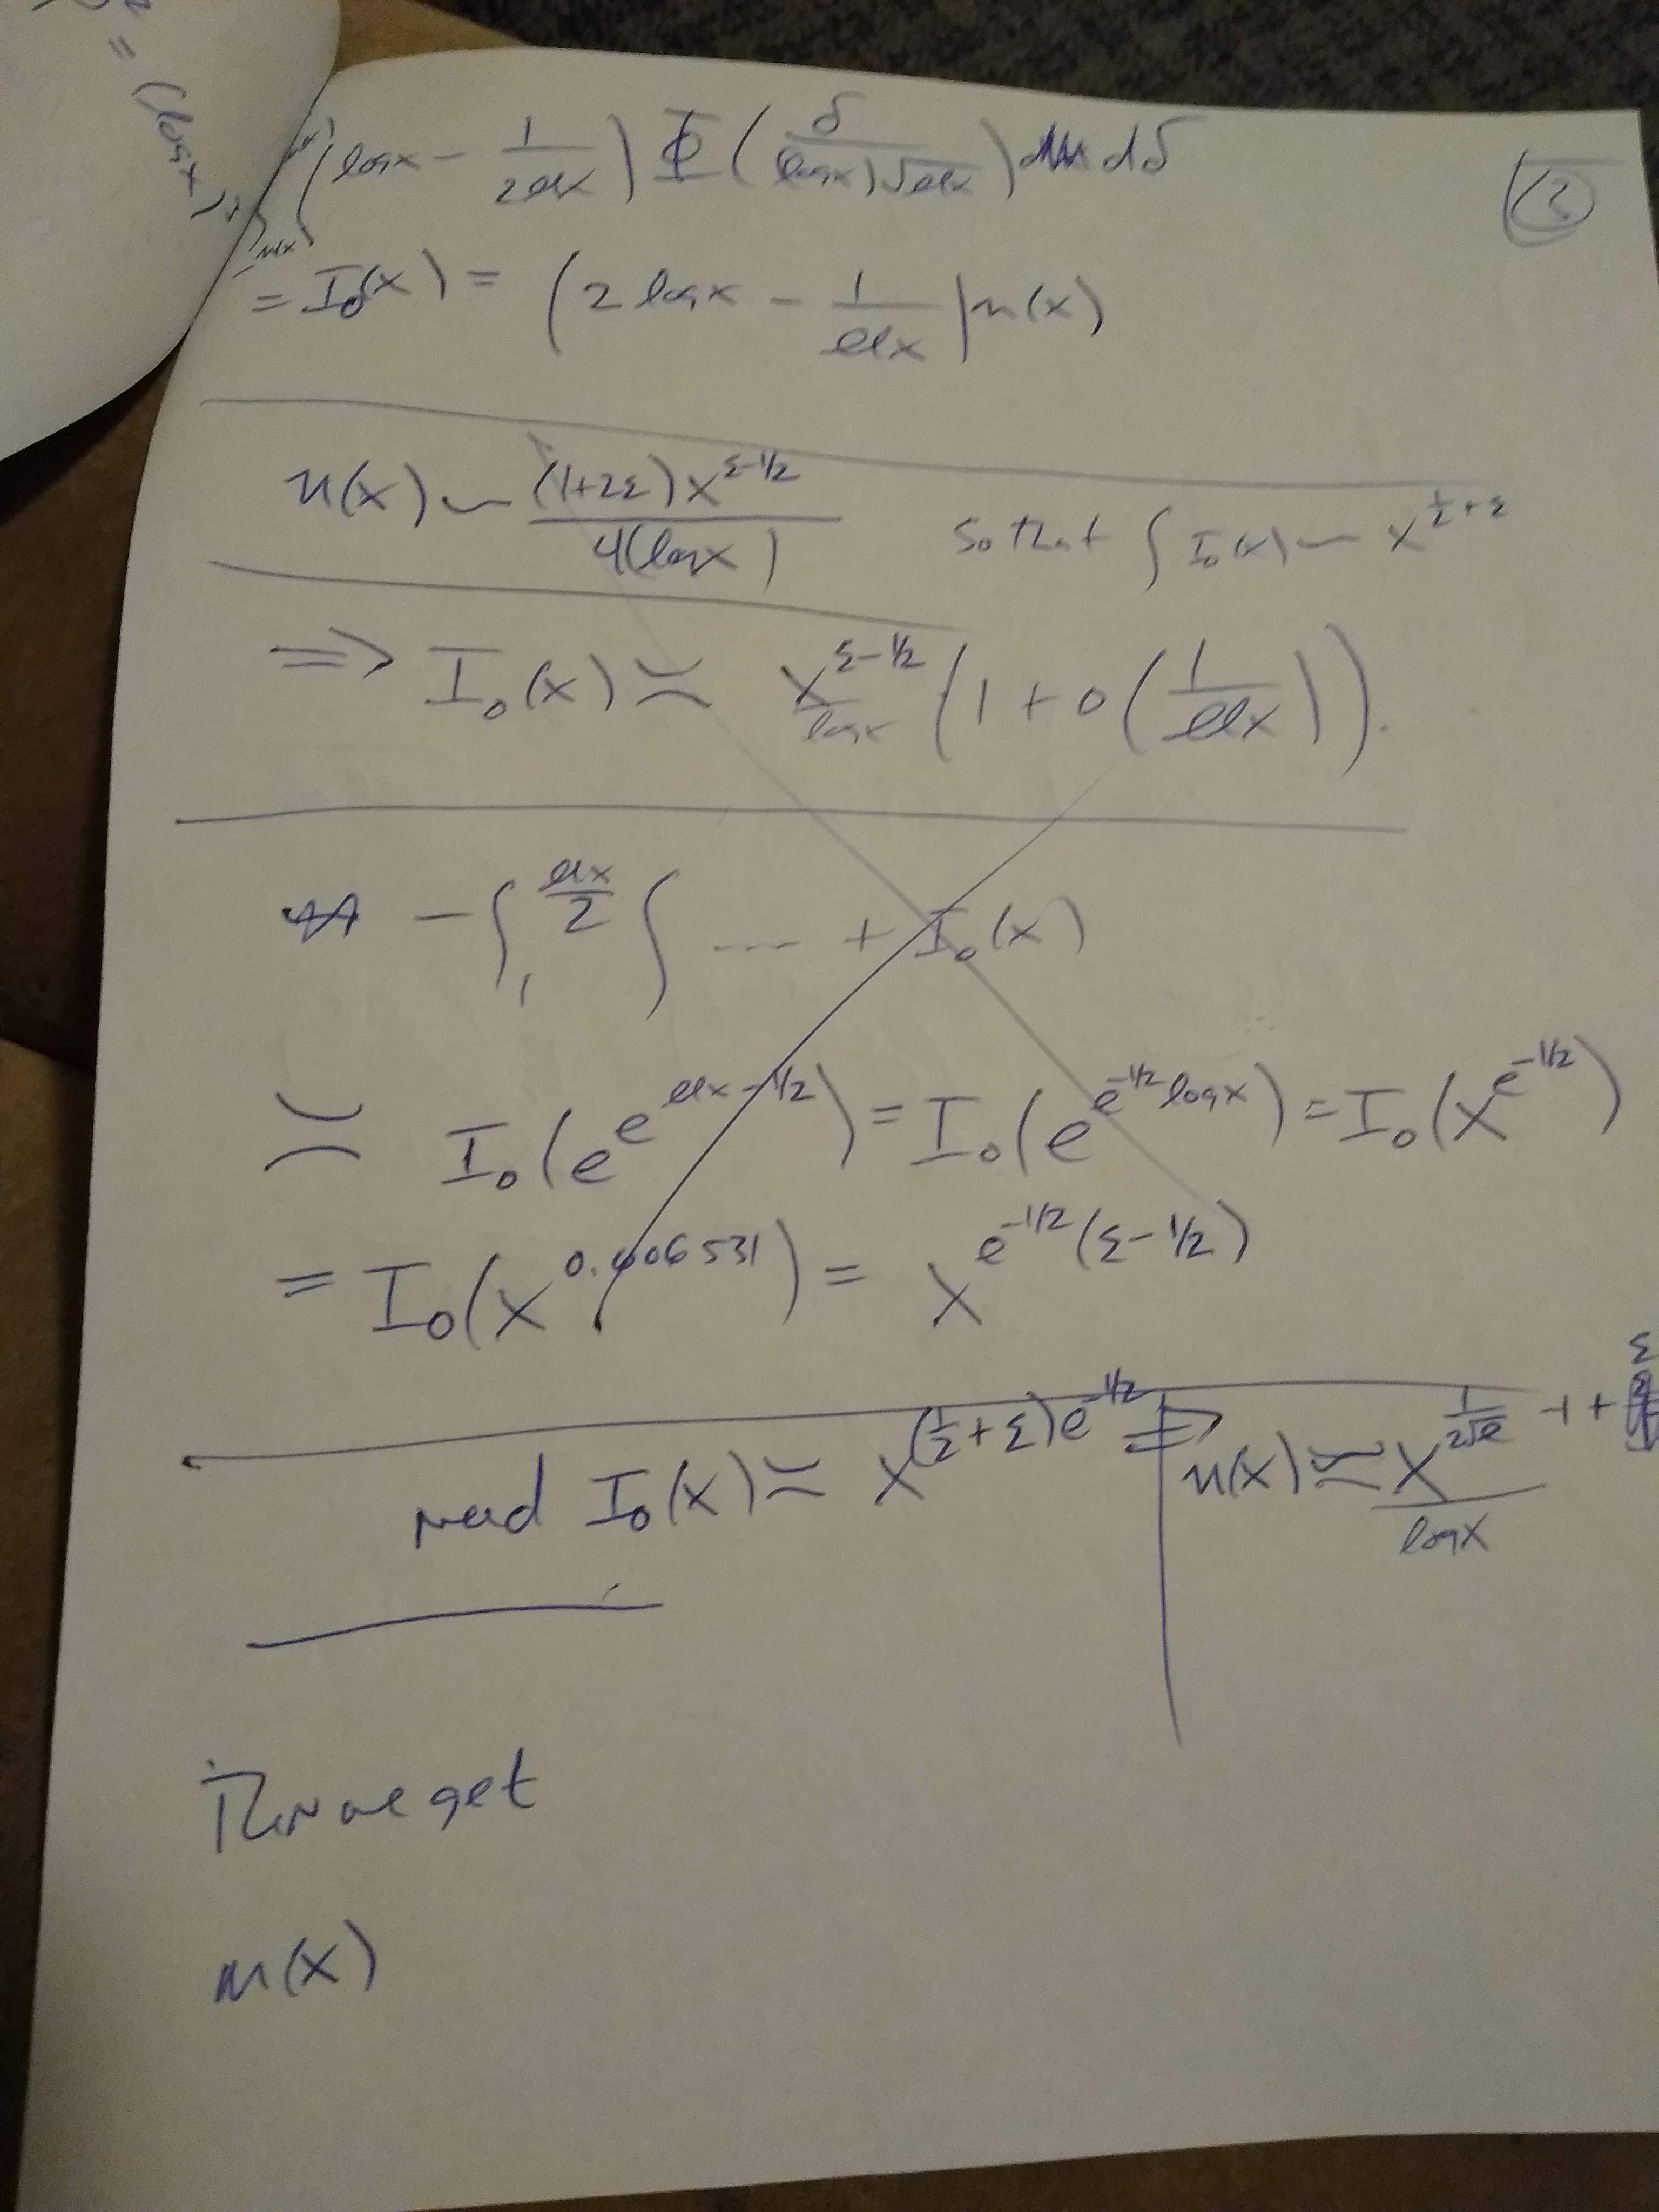 = (log x)
∫ (log x - 1/(2llx)) Φ(δ/((log x)√llx)) dδ
(3)
= I₀(x) = (2 log x - 1/llx) u(x)
u(x) ~ (1+2ε)x^(ε-1/2) / 4(log x) so that ∫ I₀(x) ~ x^(1/2+ε)
⇒ I₀(x) ≍ x^(ε-1/2)/log x (1 + o(1/llx)).
- ∫₁^(llx/2) ∫ ---- + I₀(x)
≍ I₀(e^(e^(llx-1/2))) = I₀(e^(e^(-1/2) log x)) = I₀(x^(e^(-1/2)))
= I₀(x^0.606531) = x^(e^(-1/2)(ε-1/2))
need I₀(x) ≍ x^((1/2+ε)e^(-1/2)) ⇒ u(x) ≍ x^(1/(2√e) -1+ε) / log x
Then we get
u(x)